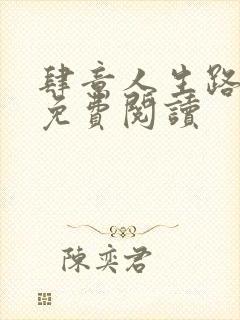 肆意人生路
免費閱讀
陳奕君